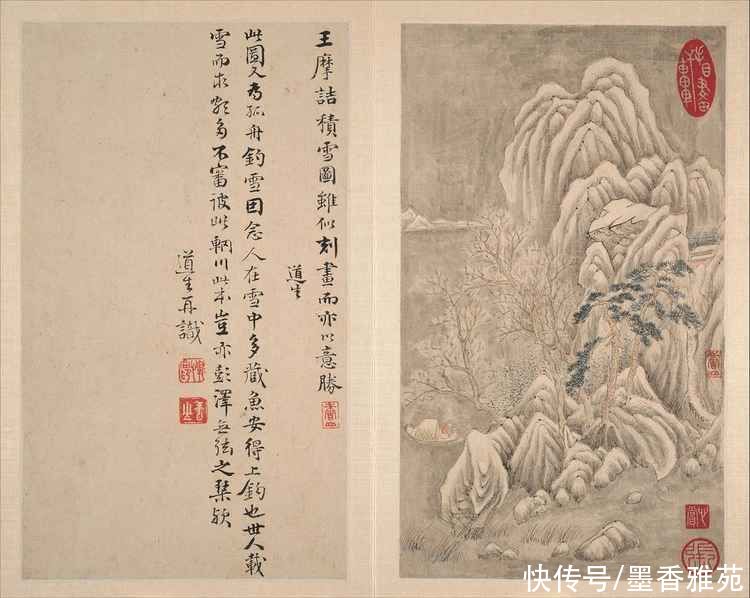 王摩詰積雪圖雖似刻畫而亦以意勝
道生
此圖又為孤舟釣雪因念人在雪中多藏魚安得上釣也世人載
雪而求多不審彼此輞川此本豈亦彭澤無弦之琴歟
道生再識
快传号/墨香雅苑